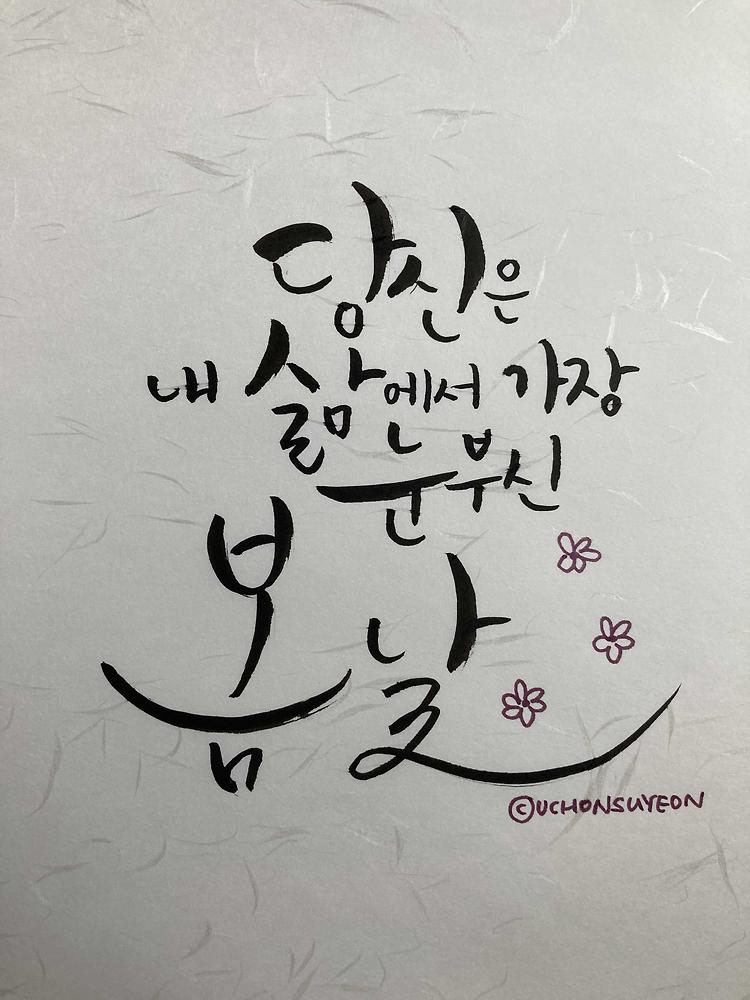 당신은
내 삶에서 가장
눈부신
봄날
©UCHONSUYEON